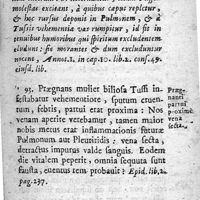 molestae excidant, à quibus caput repletur,
& hoc rursus deponit in Pulmonem, & à
Tussis vehementia vas rumpitur, id fit in
senibus humoribus qui spiritum excludentem
cludunt: sic morantes & dum excluduntur
nocent, Annot. 1. in cap. 10. lib. 2. cons. 49.
eiusd. lib.
93. Prægnans mulier biliosa Tussi in-
festabatur vehementiore, sputum cruen-
tum, febris, partui erat proxima: Nos
venam aperire verebamur, tamen maior
nobis metus erat inflammationis futuræ
Pulmonum aut Pleuritidis: vena secta,
detractus impurus valde sanguis. Eodem
die vitalem peperit, omnia sequuta sunt
fausta, euentus rem probauit: Epid. lib. 2.
pag. 237.
Præg-
nanti
partui
proximæ
vena
secta.